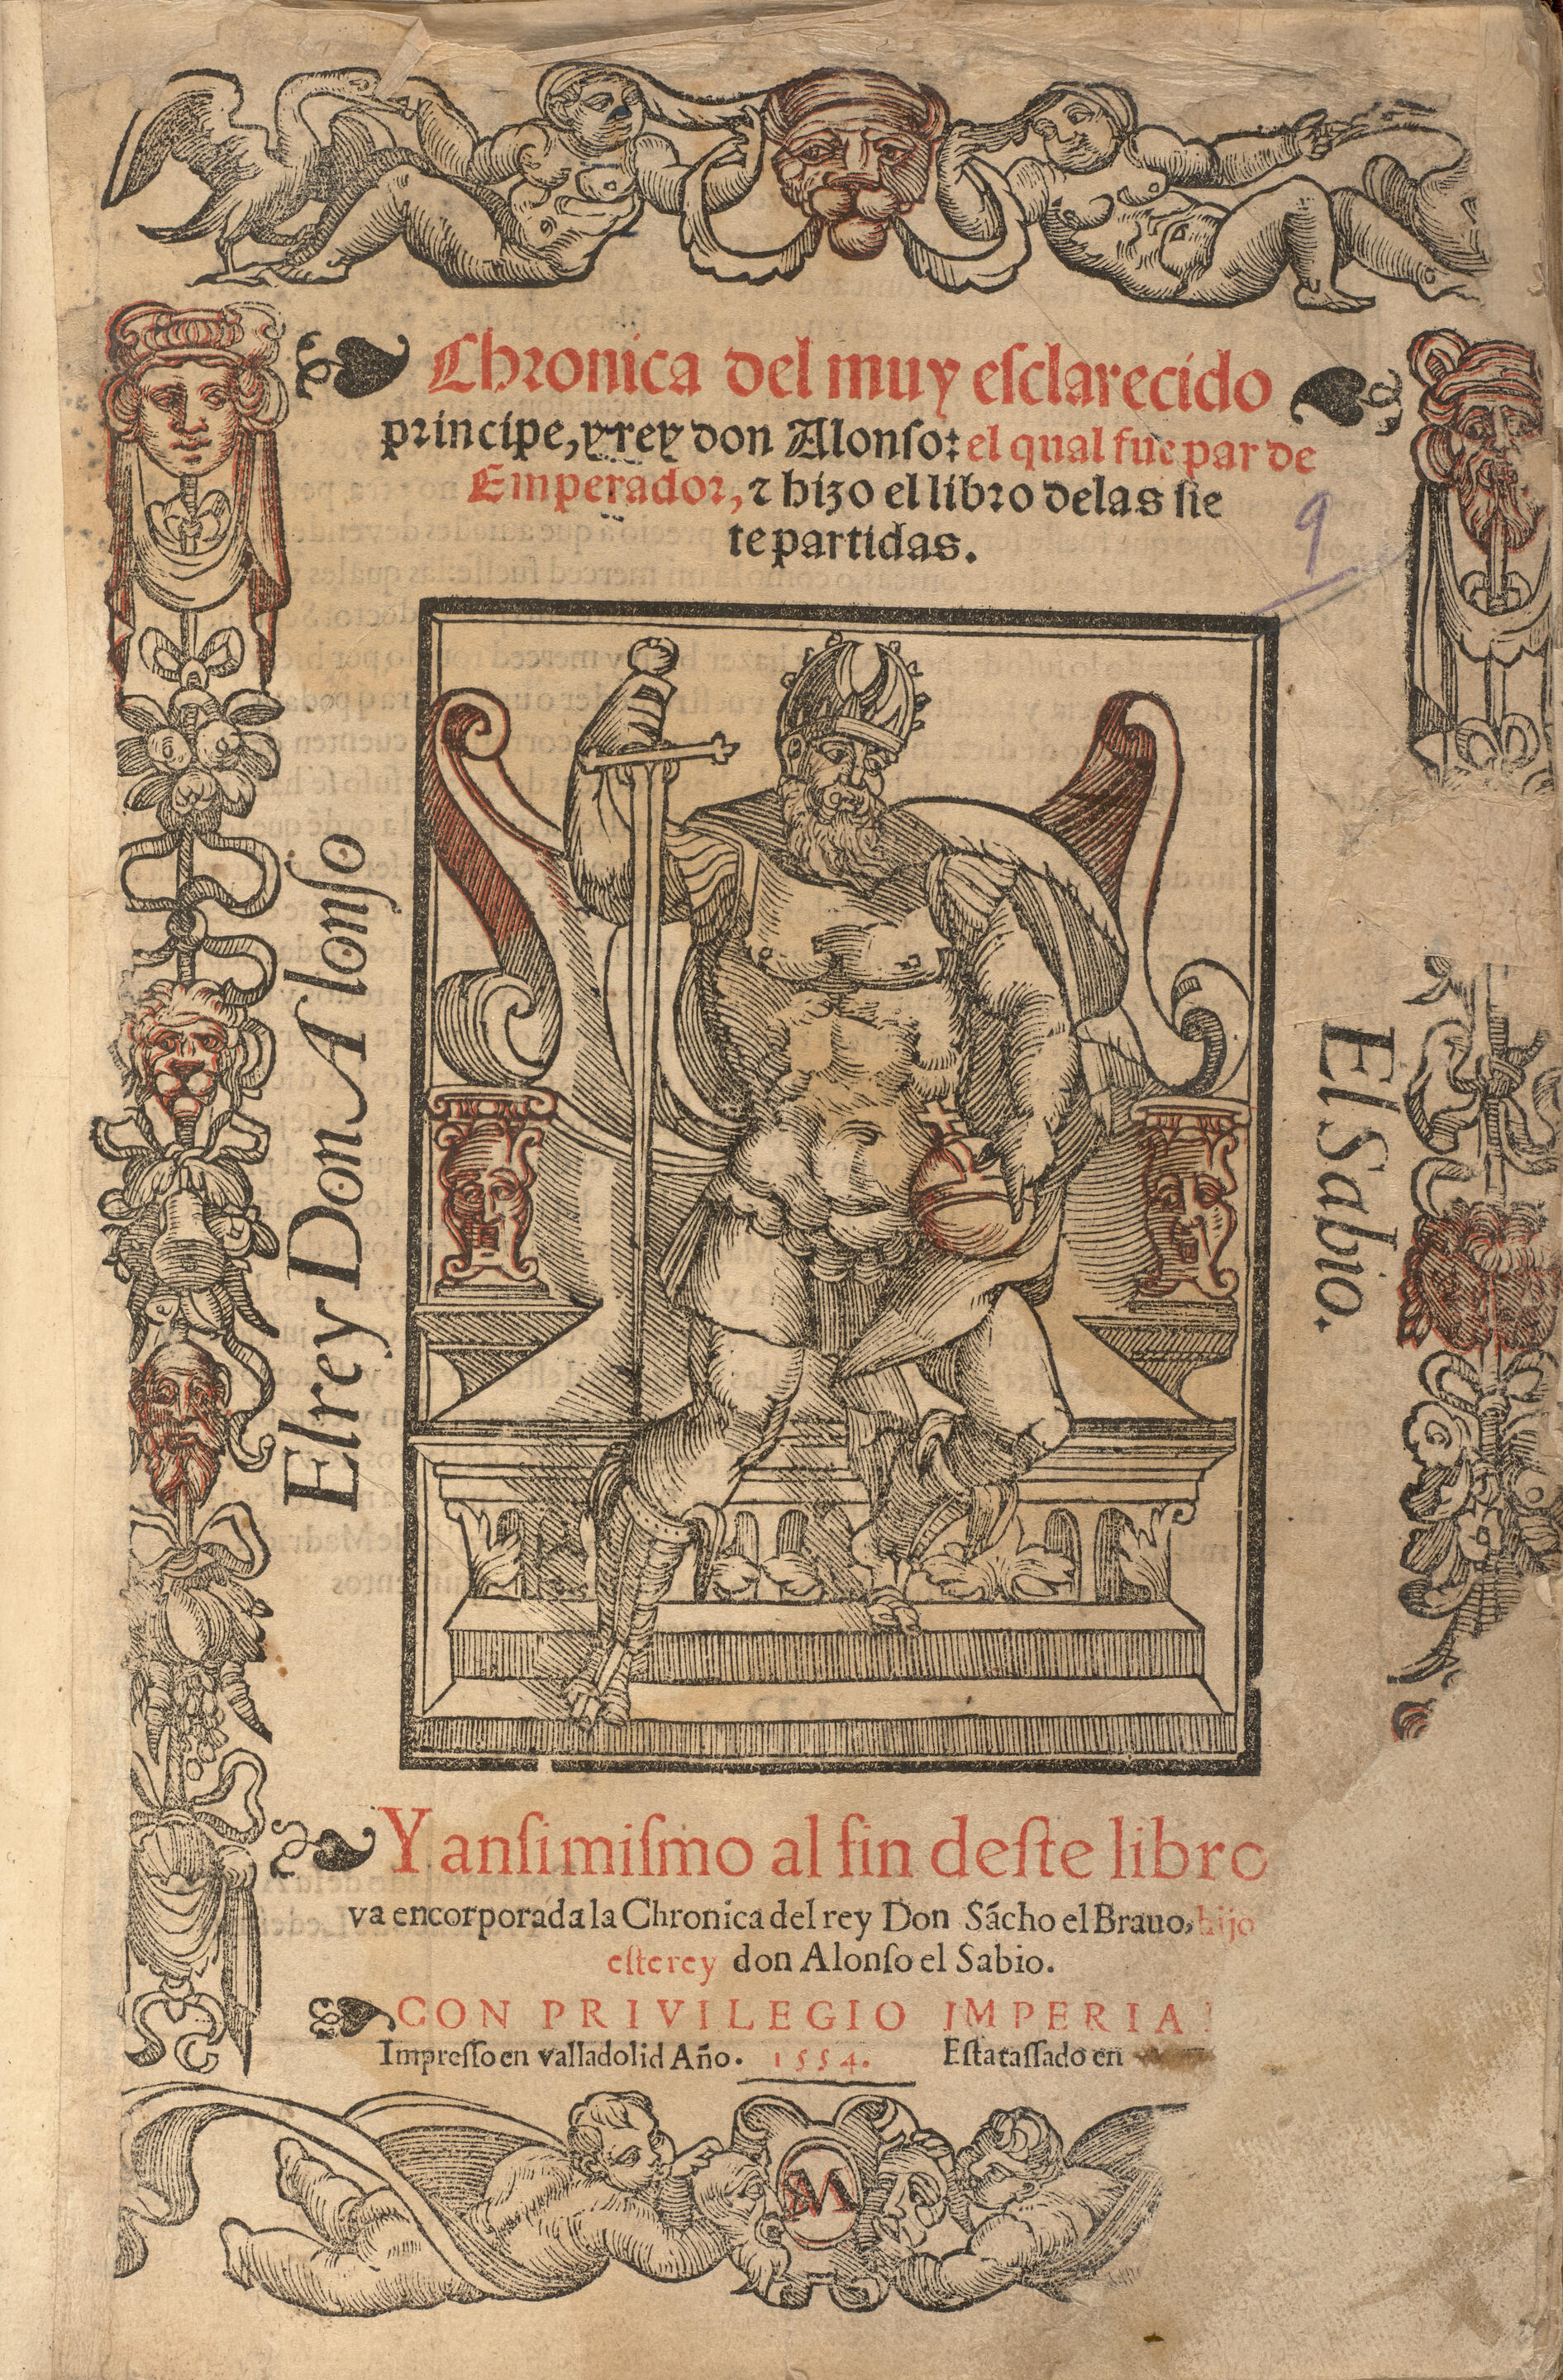 Chronica del muy eſclarecido
principe, y rey don Alonſo: el qual fue par de
Emperador, ⁊ hizo el libro delas ſie
te partidas.
9
El rey Don Alonſo
El Sabio.
Y anſi miſmo al fin deſte libro
va encorporada la Chronica del rey Don Sácho el Brauo, hijo
eſte rey don Alonſo el Sabio.
CON PRIVILEGIO IMPERIA
Impreſſo en valladolid Año. 1554. Eſta taſſado en